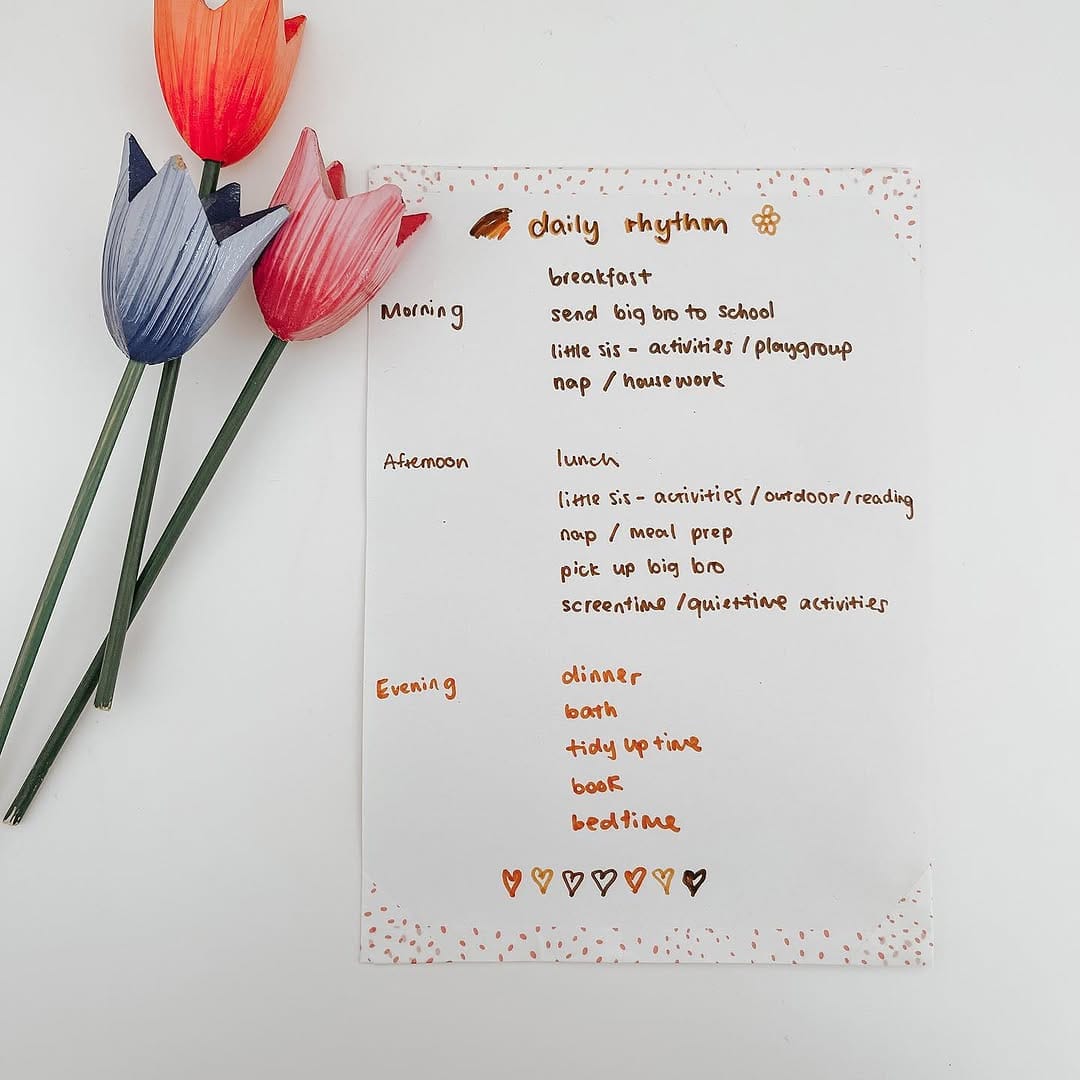 daily rhythm
breakfast
Morning send big bro to school
little sis - activities / playgroup
nap / housework
Afternoon lunch
little sis - activities / outdoor / reading
nap / meal prep
pick up big bro
screentime / quiettime activities
Evening dinner
bath
tidy up time
book
bedtime